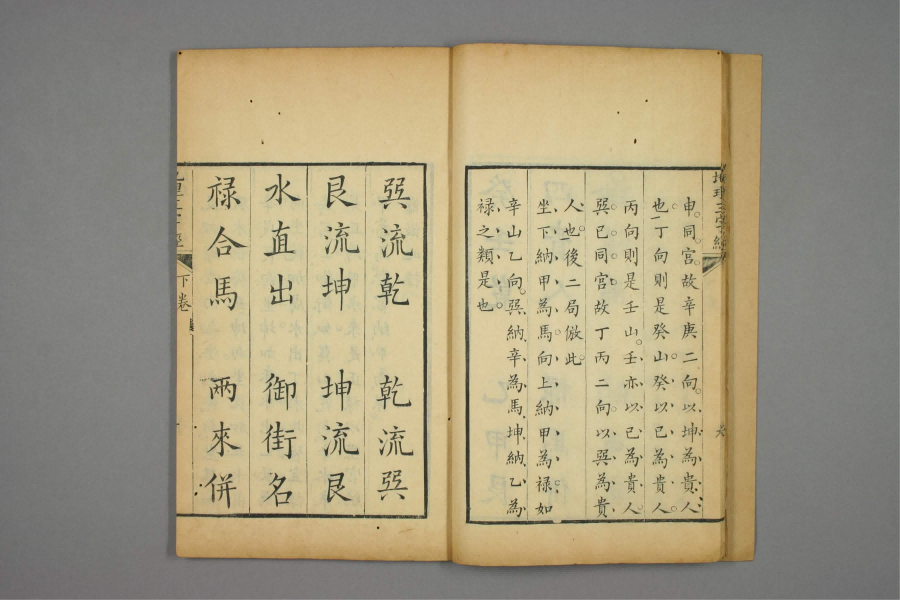 地理三字經
申同宮故辛庚二向以坤為貴人
也丁向則是癸山癸以巳為貴人
丙向則是壬山壬亦以巳為貴人
巽巳同宮故丁丙二向以巽為貴
人也後二局倣此
坐下納甲為馬向上納甲為祿如
辛山乙向巽納辛為馬坤納乙為
祿之類是也
巽流乾 乾流巽
艮流坤 坤流艮
水直出 御街名
祿合馬 兩來併
下卷